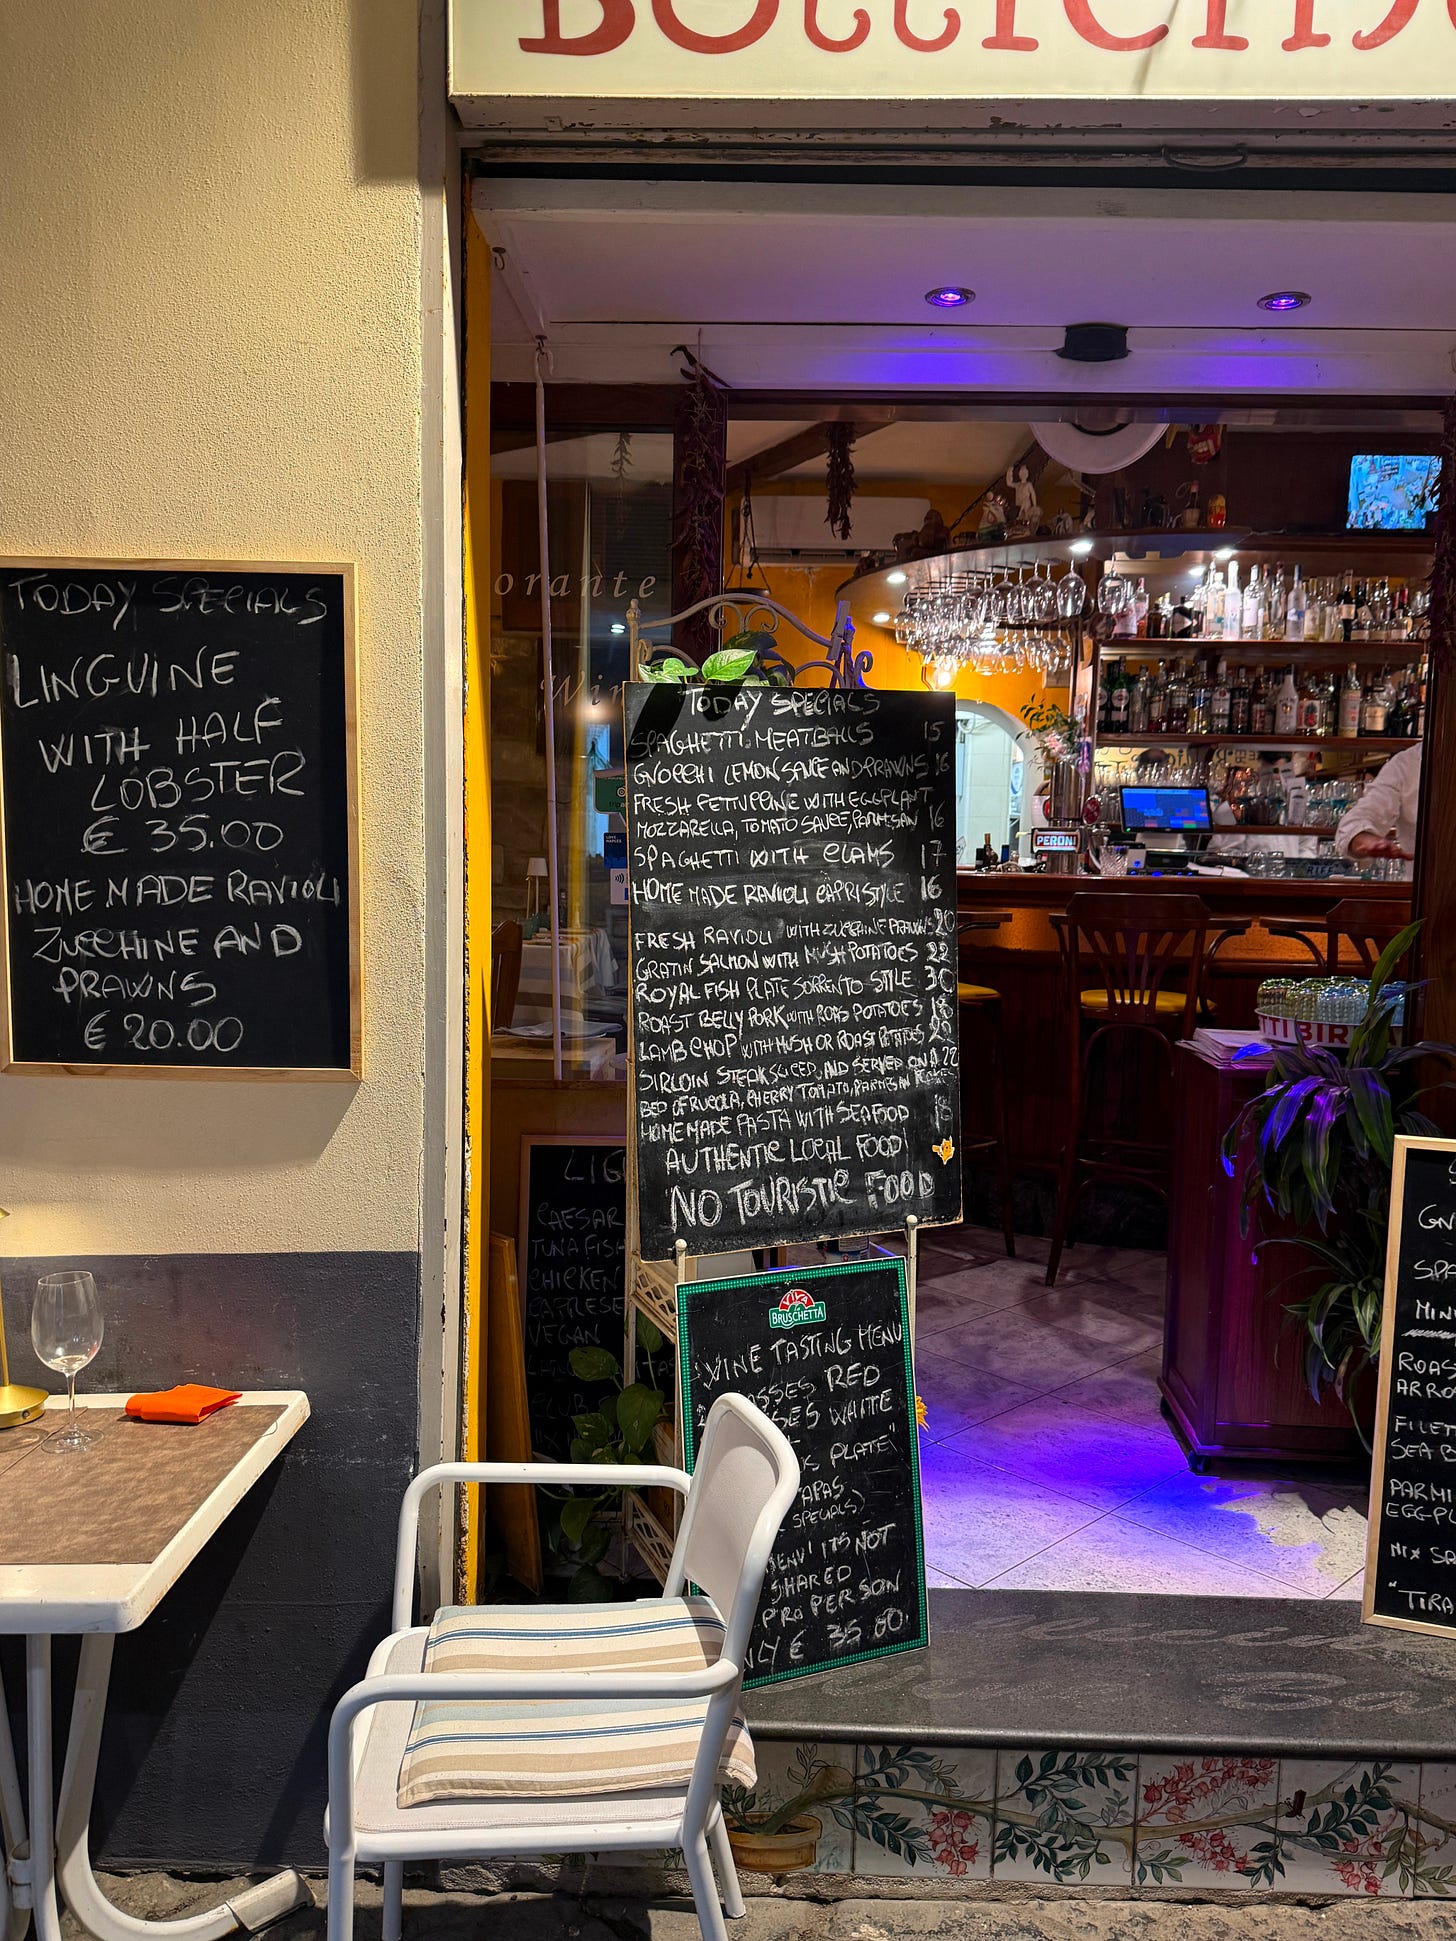 TODAY SPECIALS
LINGUINE
WITH HALF
LOBSTER
€ 35.00
HOME MADE RAVIOLI
ZUCCHINE AND
PRAWNS
€ 20.00
orante
TODAY SPECIALS
SPAGHETTI MEATBALLS 15
GNOCCHI LEMON SAUCE AND PRAWNS 16
FRESH FETTUCCINE WITH EGGPLANT
MOZZARELLA, TOMATO SAUCE, PARMESAN 16
SPAGHETTI WITH CLAMS 17
HOME MADE RAVIOLI CAPRI STYLE 16
FRESH RAVIOLI WITH ZUCCHINE PRAWNS 20
GRATIN SALMON WITH MUSH POTATOES 22
ROYAL FISH PLATE SORRENTO STYLE 30
ROAST BELLY PORK WITH ROAS POTATOES 18
LAMB CHOP WITH MUSH OR ROAST POTATOES 22
SIRLOIN STEAK SLICED AND SERVED ON A 22
BED OF RUCOLA, CHERRY TOMATO, PARMESAN FLAKES
HOME MADE PASTA WITH SEAFOOD 18
AUTHENTIC LOCAL FOOD!
NO TOURISTIC FOOD
LIG
CAESAR
TUNA FISH
CHICKEN
CAPRESE
VEGAN
CLUB
VIVA
BRUSCHETTA
WINE TASTING MENU
RED
WHITE
PLATE"
TAPAS
SPECIALS)
MENU' IT'S NOT
SHARED
PRO PER SON
€ 35.00
PERONI
GN
SPA
MIN
ROAS
ARRO
FILET
SEA B
PARMI
EGGPL
MIX SA
"TIRA